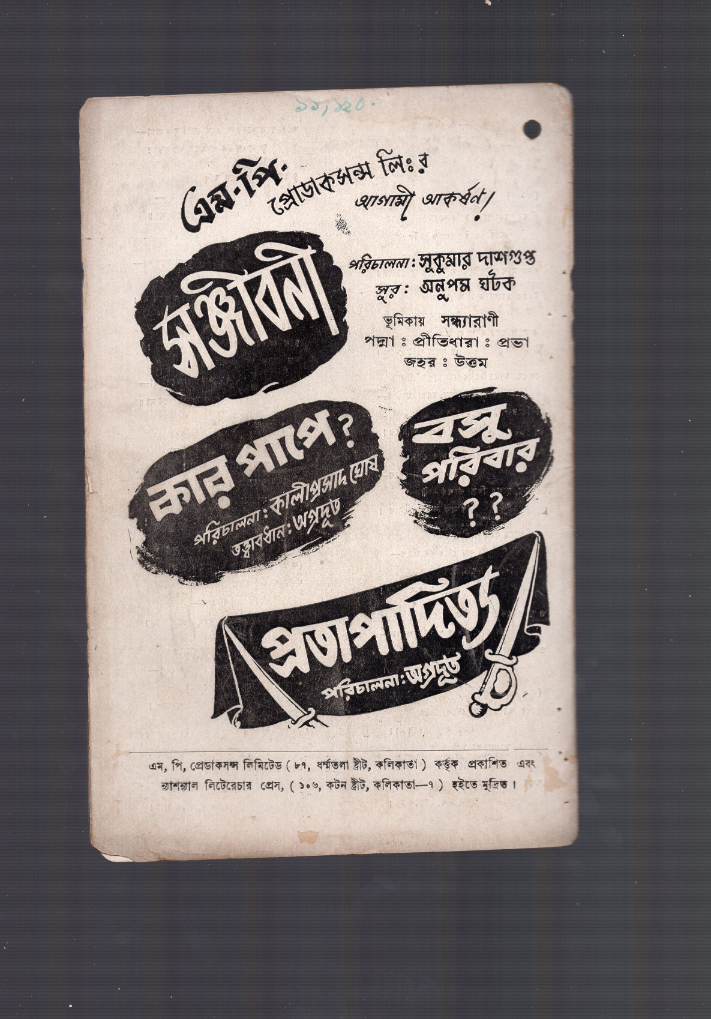 ১১/১২০.
এম.পি. প্রোডাকসন্স লিঃর
আগামী আকর্ষণ!
সঞ্জীবনী
পরিচালনা: সুকুমার দাশগুপ্ত
সুর: অনুপম ঘটক
ভূমিকায় সন্ধ্যারাণী
পদ্মা : প্রীতিধারা : প্রভা
জহর : উত্তম
কার পাপে?
পরিচালনা: কালীপ্রসাদ ঘোষ
তত্ত্বাবধান: অগ্রদূত
বসু
পরিবার
??
প্রতাপাদিত্য
পরিচালনা: অগ্রদূত
এম, পি, প্রেডাকসন্স লিমিটেড ( ৮৭, ধর্ম্মতলা ষ্ট্রীট, কলিকাতা ) কর্ত্তৃক প্রকাশিত এবং
ন্যাশন্যাল লিটেরেচার প্রেস, ( ১০৬, কটন ষ্ট্রীট, কলিকাতা—৭ ) হইতে মুদ্রিত।